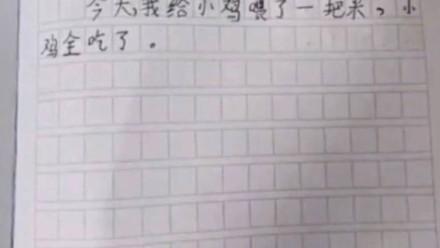 今天,我给小鸡喂了一把米，小
鸡全吃了。